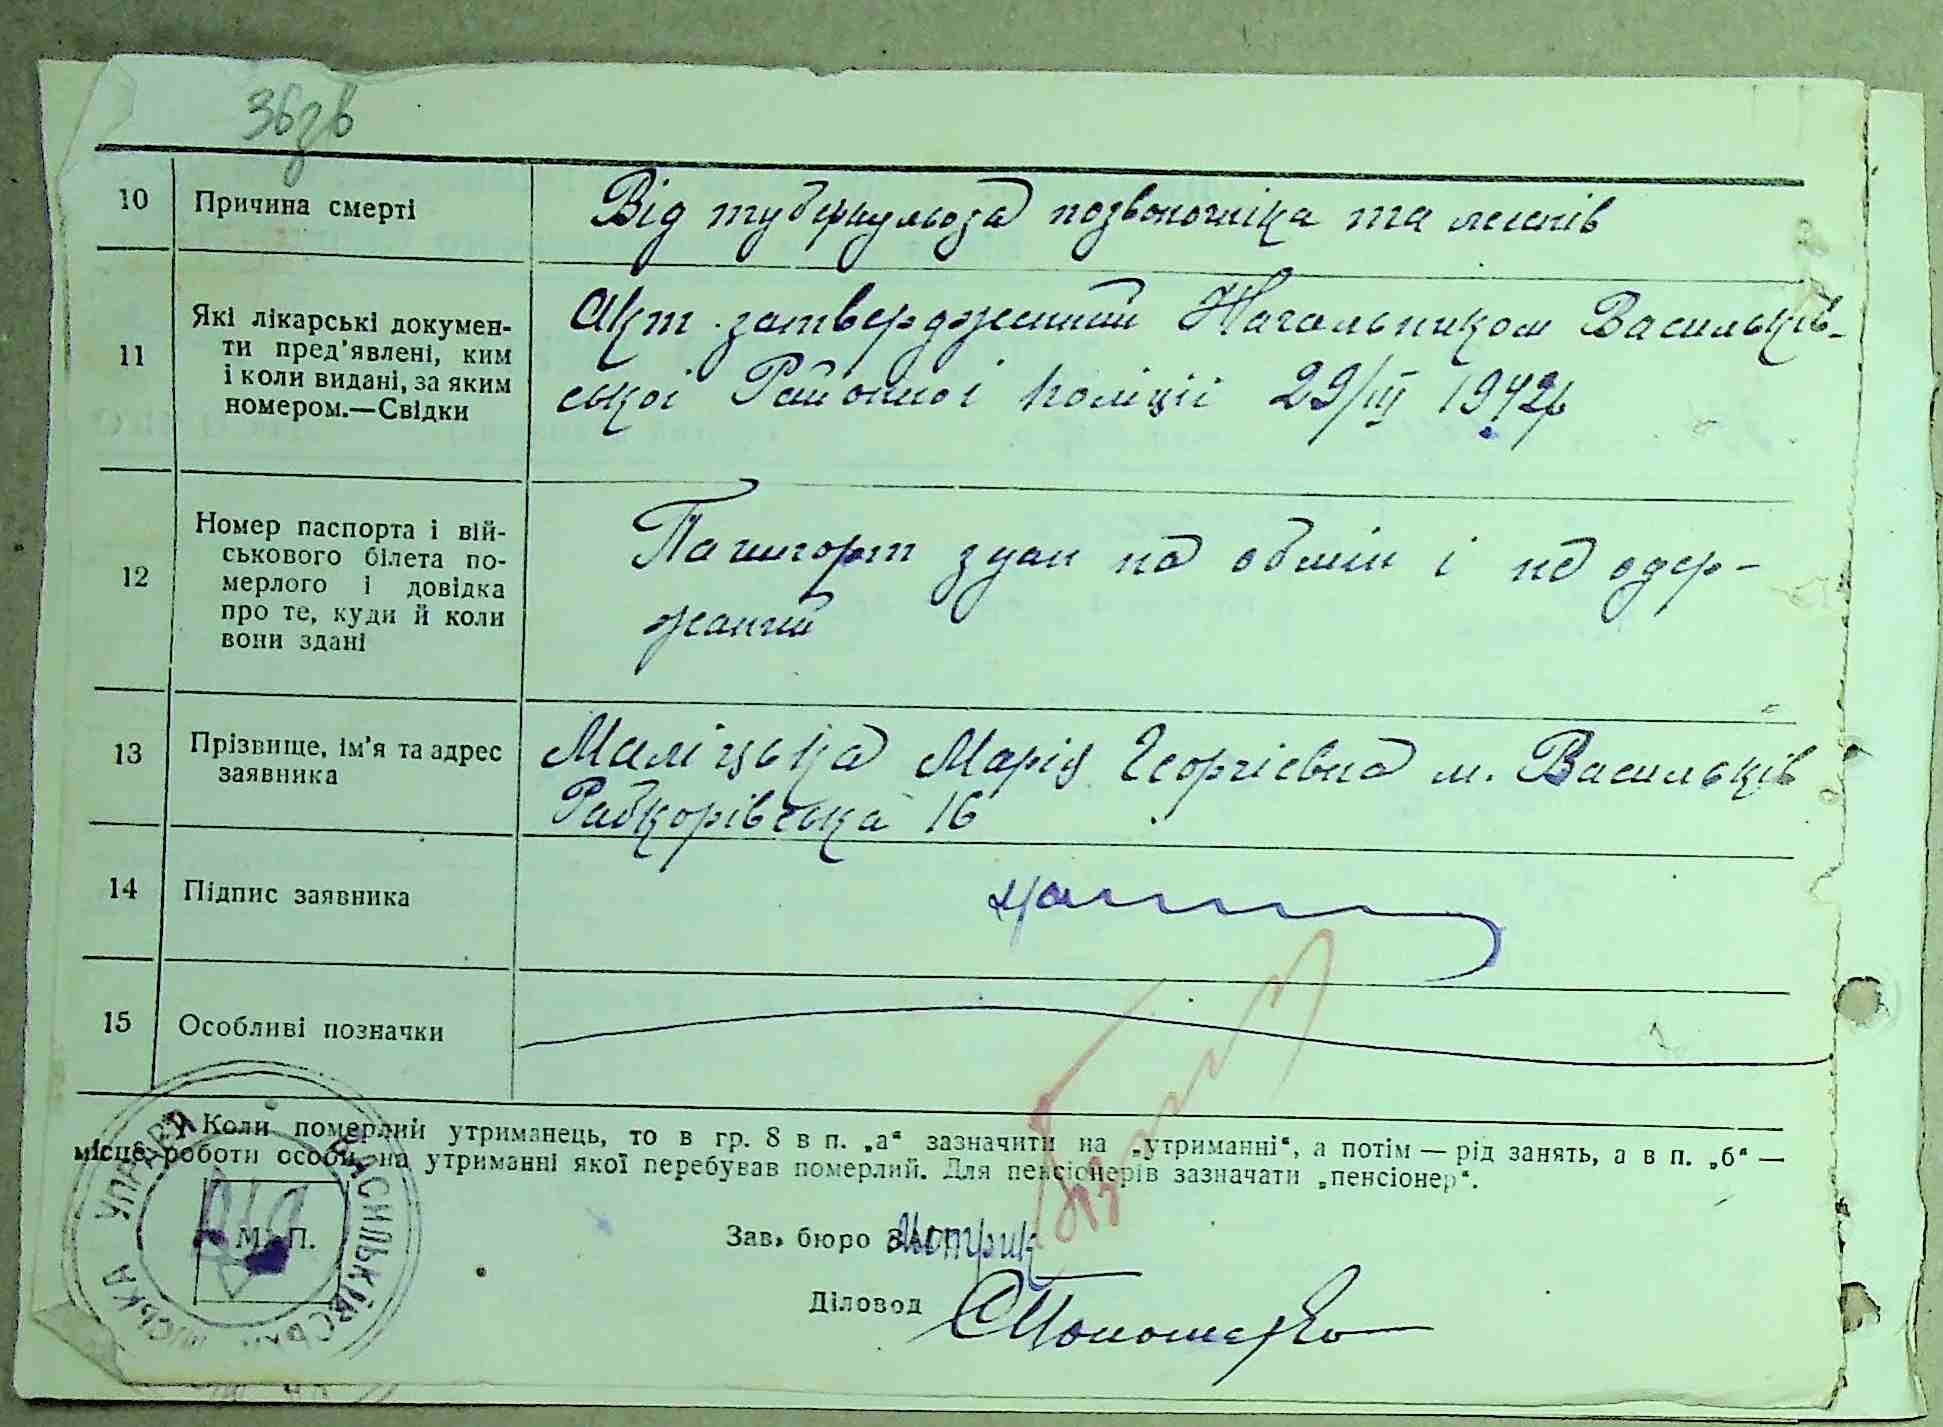 36зв
10 Причина смерті Від туберкульоза позвоночніка та легенів
11 Які лікарські докумен-
ти пред'явлені, ким
і коли видані, за яким
номером.—Свідки
Акт затверджений Начальником Васильків-
ської Районної поліції 29/III 1942р
12 Номер паспорта і вій-
ськового білета по-
мерлого і довідка
про те, куди й коли
вони здані
Пашпорт здан на обмін і не одер-
жаний
13 Прізвище, ім'я та адрес
заявника
Маліцька Марія Георгієвна м. Васильків
Рабкорівська 16
14 Підпис заявника
15 Особливі позначки
Коли померлий утриманець, то в гр. 8 в п. „а“ зазначити на „утриманні“, а потім — рід занять, а в п. „б“ —
місце роботи особи, на утриманні якої перебував померлий. Для пенсіонерів зазначати „пенсіонер“.
М. П.
ВАСИЛЬКІВСЬКА МІСЬКА УПРАВА
Зав. бюро
Діловод